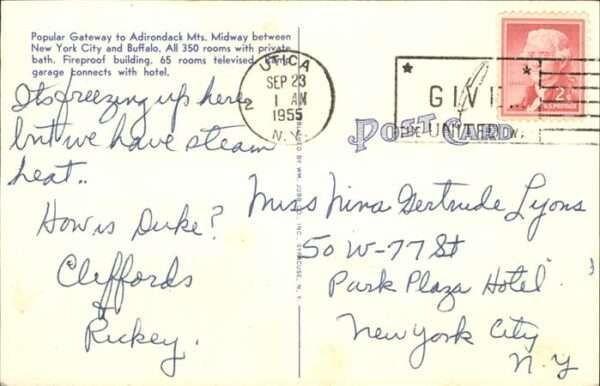 Popular Gateway to Adirondack Mts. Midway between
New York City and Buffalo. All 350 rooms with private
bath. Fireproof building. 65 rooms televised.
garage connects with hotel.
UTICA
SEP 23
1 AM
1955
N.Y.
GIVE
UNITED W
2¢
U.S. POSTAGE
POST CARD
Its freezing up here
but we have steam
heat..
How is Duke?
Cliffords
&
Rickey.
Miss Nina Gertrude Lyons
50 W-77 St
Park Plaza Hotel
New York City
N.Y
INC., SYRACUSE, N. Y.